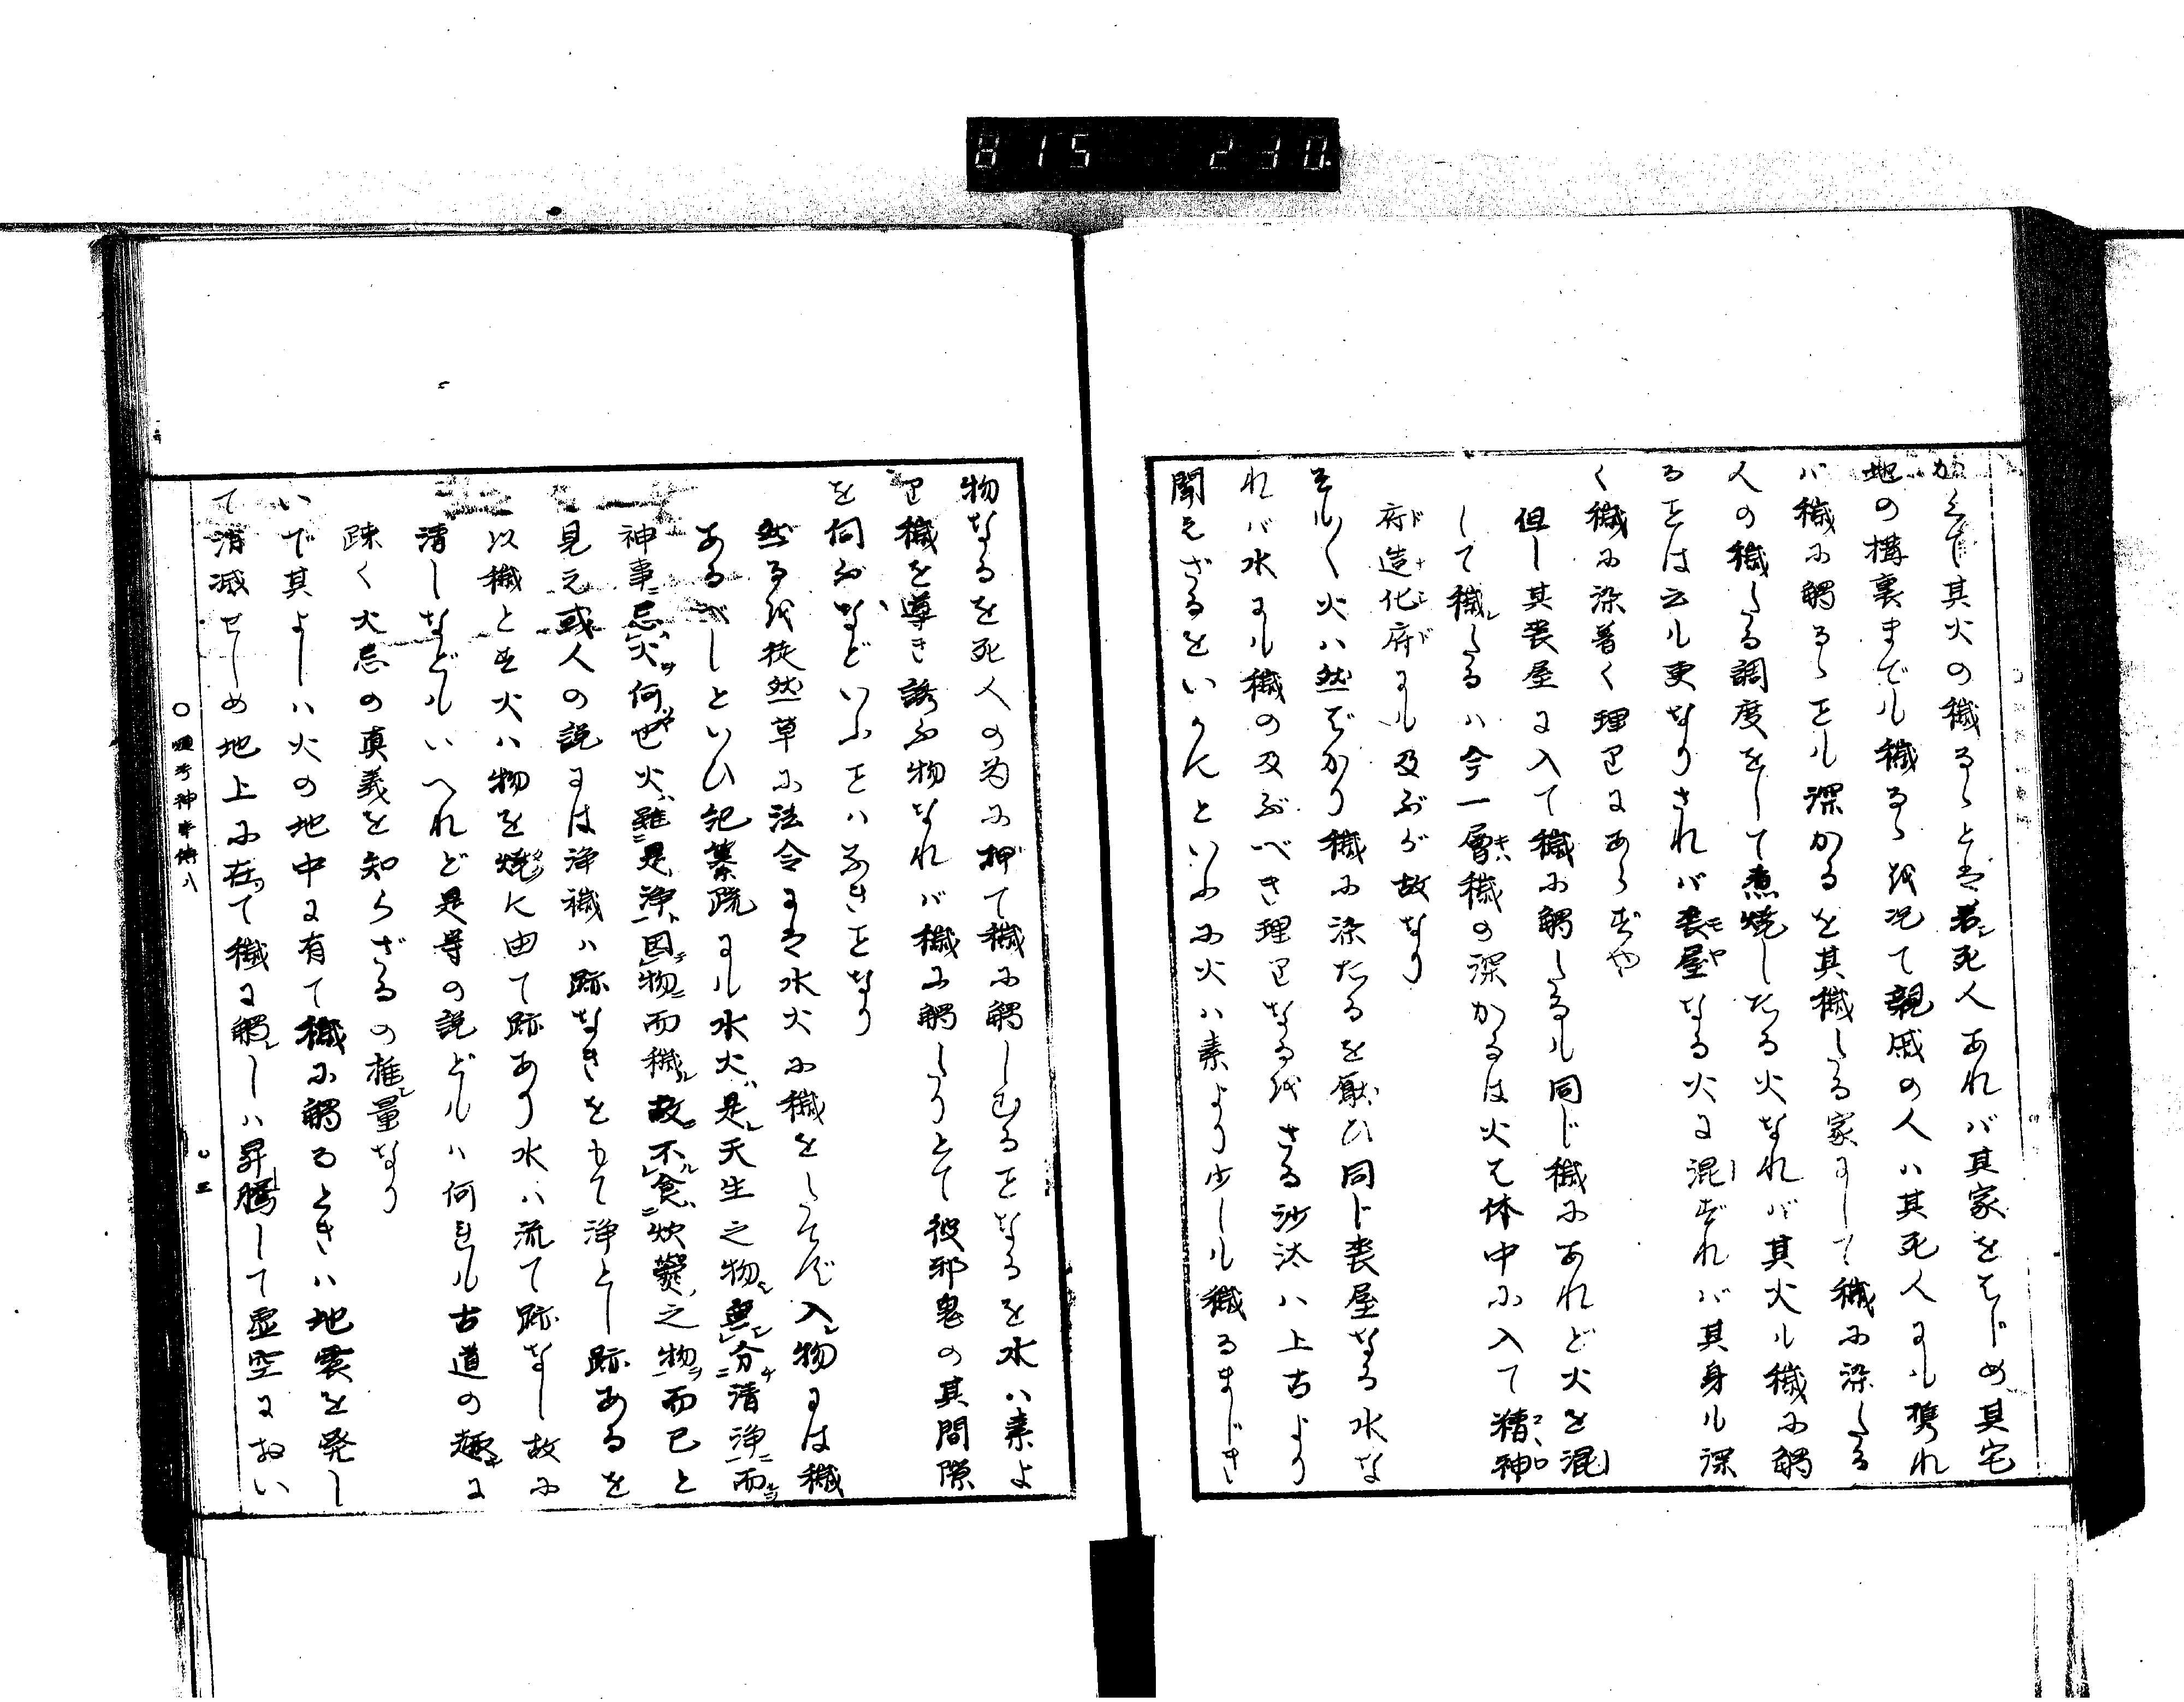 815 230
かくて其火の穢るゝとは若死人あれバ其家をはじめ其宅
地の構裏までも穢るゝを況て親戚の人ハ其死人にも携れ
バ穢に觸るゝことも深かるを其穢したる家にして穢に染たる
人の穢したる調度をして煮焼したる火なれバ其火も穢に觸
ることは云も更なりされバ喪屋なる火に混ずれバ其身も深
く穢に染着く理りにあらずや
但し其喪屋に入て穢に觸したるも同じ穢にあれど火を混
して穢したるハ今一層穢の深かるは火は体中に入て精神
府造化府にも及ぶが故なり
そも〳〵火ハ然ばかり穢に染たるを厭ひ同じ喪屋なる水な
れバ水にも穢の及ぶべき理りなるをさる沙汰ハ上古より
聞えざるをいかんといふに火ハ素より少しも穢るまじき
物なるを死人の為に押て穢に觸しむることなるを水ハ素よ
り穢を導き誘ふ物なれバ穢に觸したりとて彼邪鬼の其間隙
を伺ふなどいふことハなきことなり
然るを徒然草に法令には水火に穢をたてず入物には穢
あるべしといひ記纂疏にも水火是天生之物無分清浄而
神事忌火何也火雖是浄因物而穢故不食炊爨之物而已と
見え或人の説には浄穢ハ跡なきをもて浄とし跡あるを
以穢とす火ハ物を焼に由て跡あり水ハ流て跡なし故に
清しなどもいへれど是等の説どもハ何れも古道の趣に
疎く火忌の真義を知らざるの推量なり
いで其よしハ火の地中に有て穢に觸るときハ地震を発し
て消滅せしめ地上に在て穢に觸しハ昇騰して虚空におい
○三